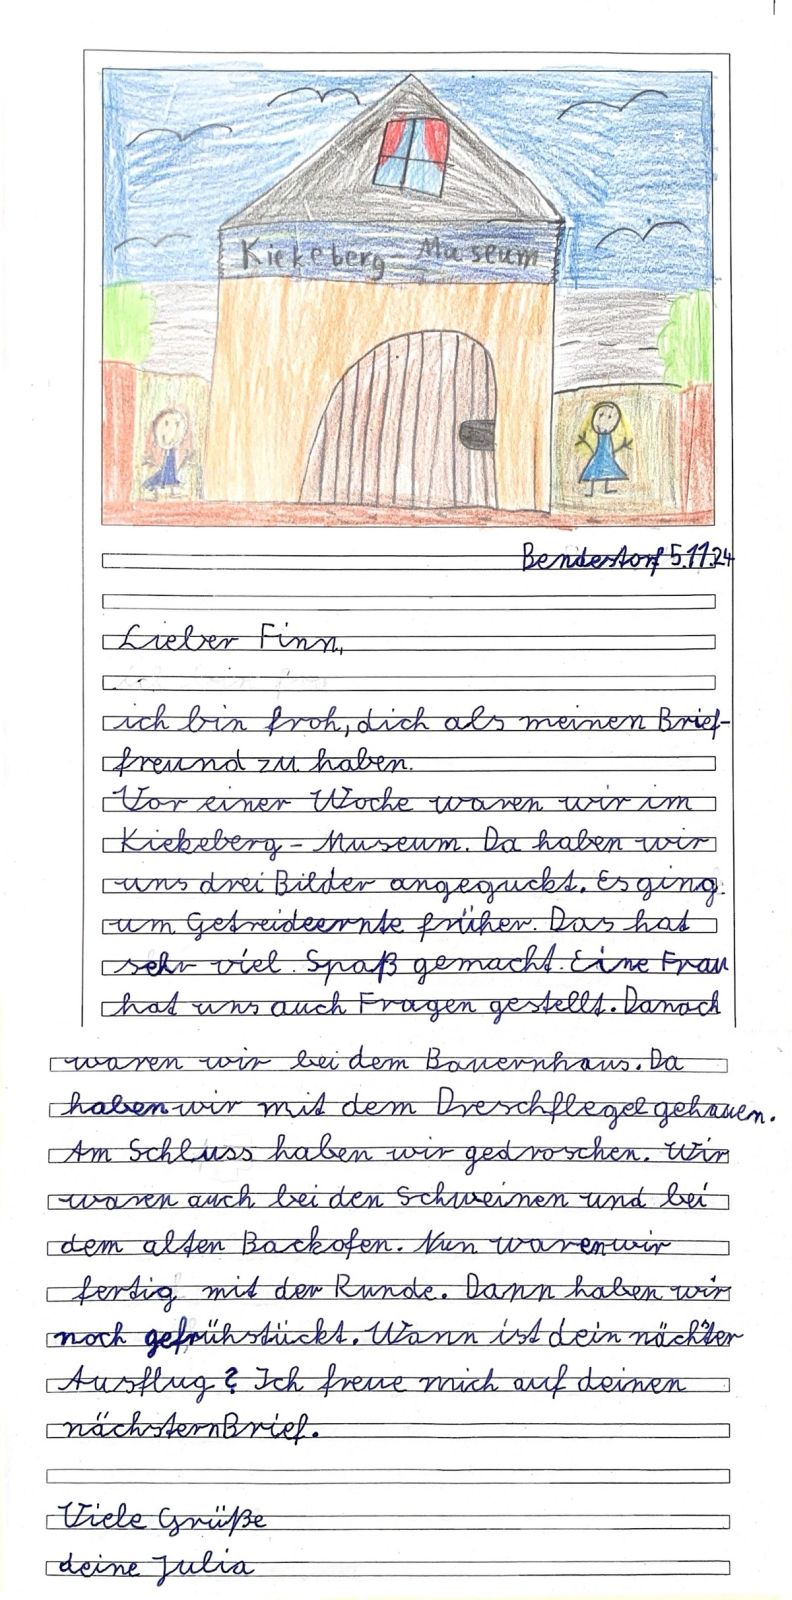 Kiekeberg-Museum
Bendestorf 5.11.24
Lieber Finn,
ich bin froh, dich als meinen Brief-
freund zu haben.
Vor einer Woche waren wir im
Kiekeberg - Museum. Da haben wir
uns drei Bilder angeguckt. Es ging
um Getreideernte früher. Das hat
sehr viel Spaß gemacht. Eine Frau
hat uns auch Fragen gestellt. Danach
waren wir bei dem Bauernhaus. Da
haben wir mit dem Dreschflegel gehauen.
Am Schluss haben wir gedroschen. Wir
waren auch bei den Schweinen und bei
dem alten Backofen. Nun waren wir
fertig mit der Runde. Dann haben wir
noch gefrühstückt. Wann ist dein nächster
Ausflug? Ich freue mich auf deinen
nächstern Brief.
Viele Grüße
deine Julia